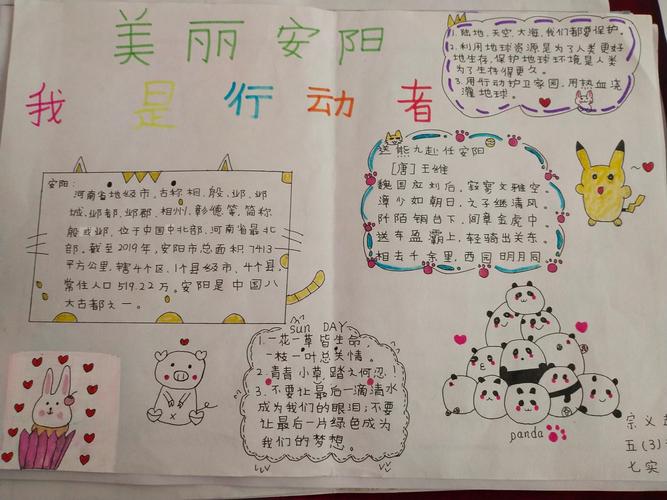 美丽安阳
我是行动者
1.陆地、天空、大海,我们都要保护。
2.利用地球资源是为了人类更好
地生存,保护地球环境是人类
为了生存得更久。
3.用行动护卫家园,用热血浇
灌地球。
安阳:
河南省地级市,古称相、殷、邺、邺
城、邺都、邺郡、相州、彰德等,简称
殷或邺,位于中国中北部、河南省最北
部。截至2019年,安阳市总面积7413
平方公里,辖4个区、1个县级市、4个县,
常住人口519.22万。安阳是中国八
大古都之一。
送熊九赴任安阳
[唐]王维
魏国应刘后,寂寥文雅空
漳沙如朝日,之子继清风。
阡陌铜台下,闾阎金虎中。
送车盈灞上,轻骑出关东。
相去千余里,西园明月同
sun DAY
1.一花一草皆生命,
一枝一叶总关情。
2.青青小草,踏之何忍!
3.不要让最后一滴清水
成为我们的眼泪;不要
让最后一片绿色成为
我们的梦想。
panda
宗义
五(3)
七实